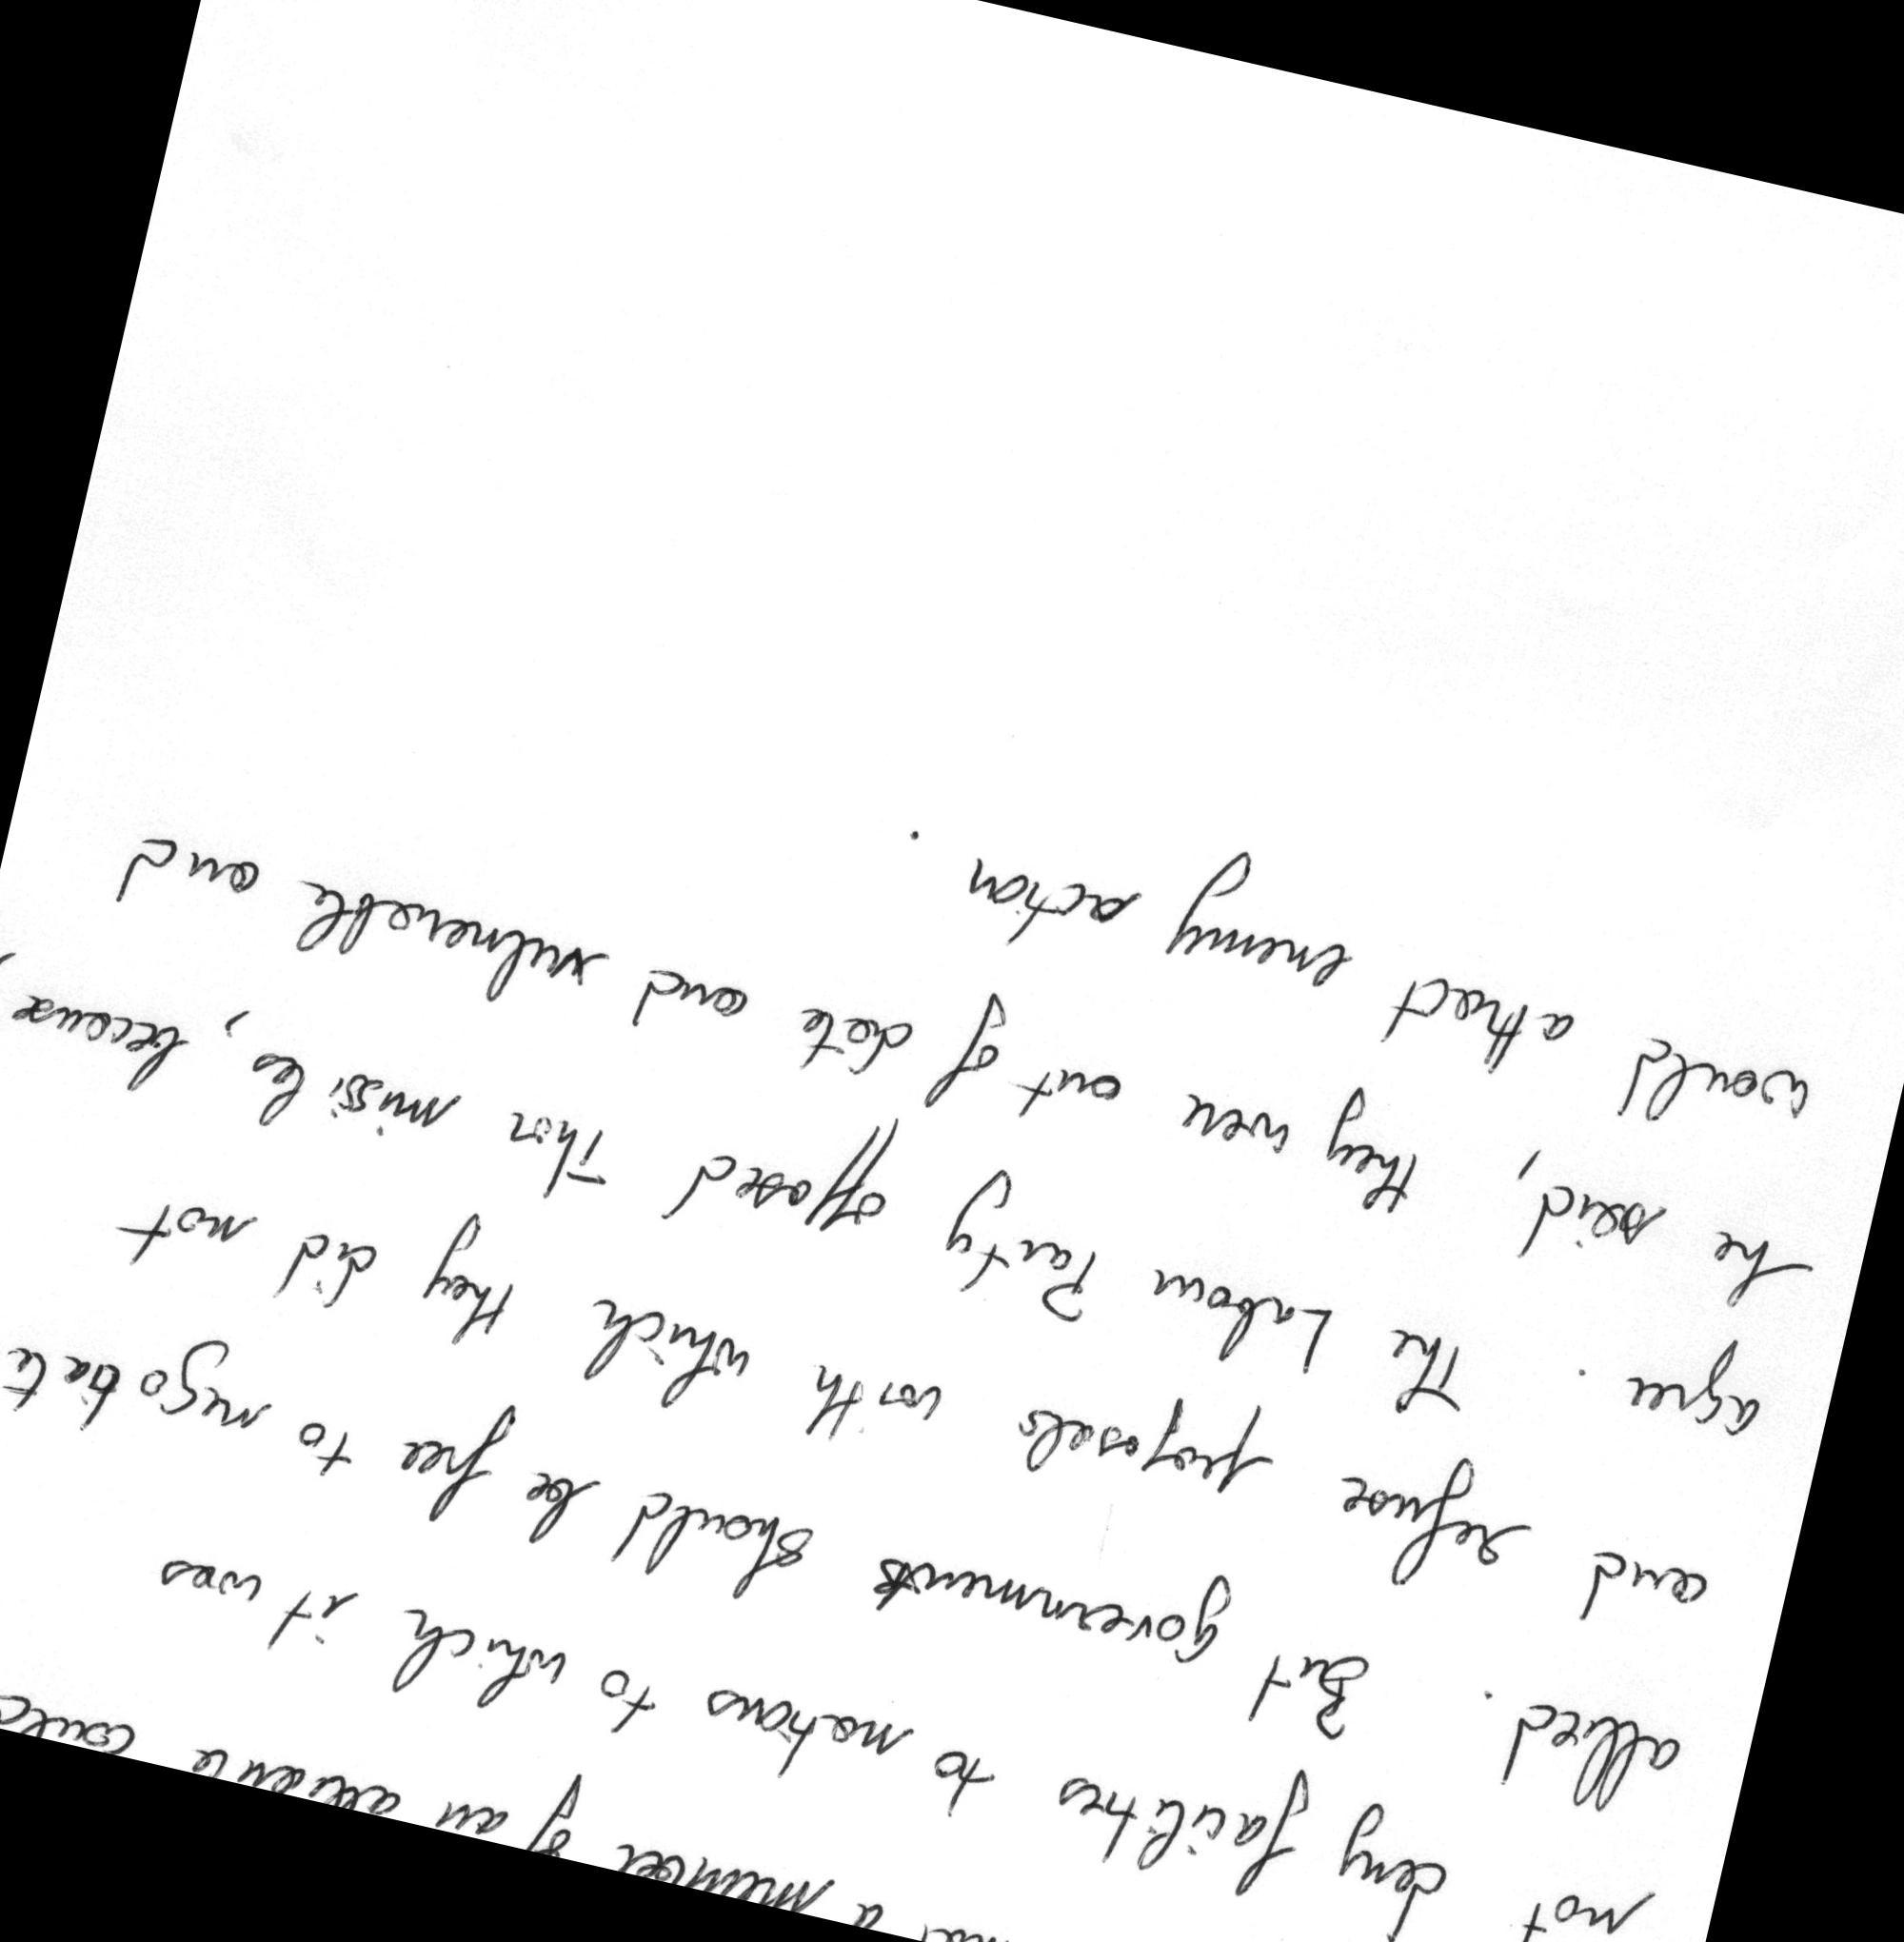 a member of an alliance could
not deny facilities to nations to which it was
allied. But governments should be free to negotiate
and refuse proposals with which they did not
agree. The Labour Party opposed Thor missiles, because,
he said, they were out of date and vulnerable and
would attract enemy action.